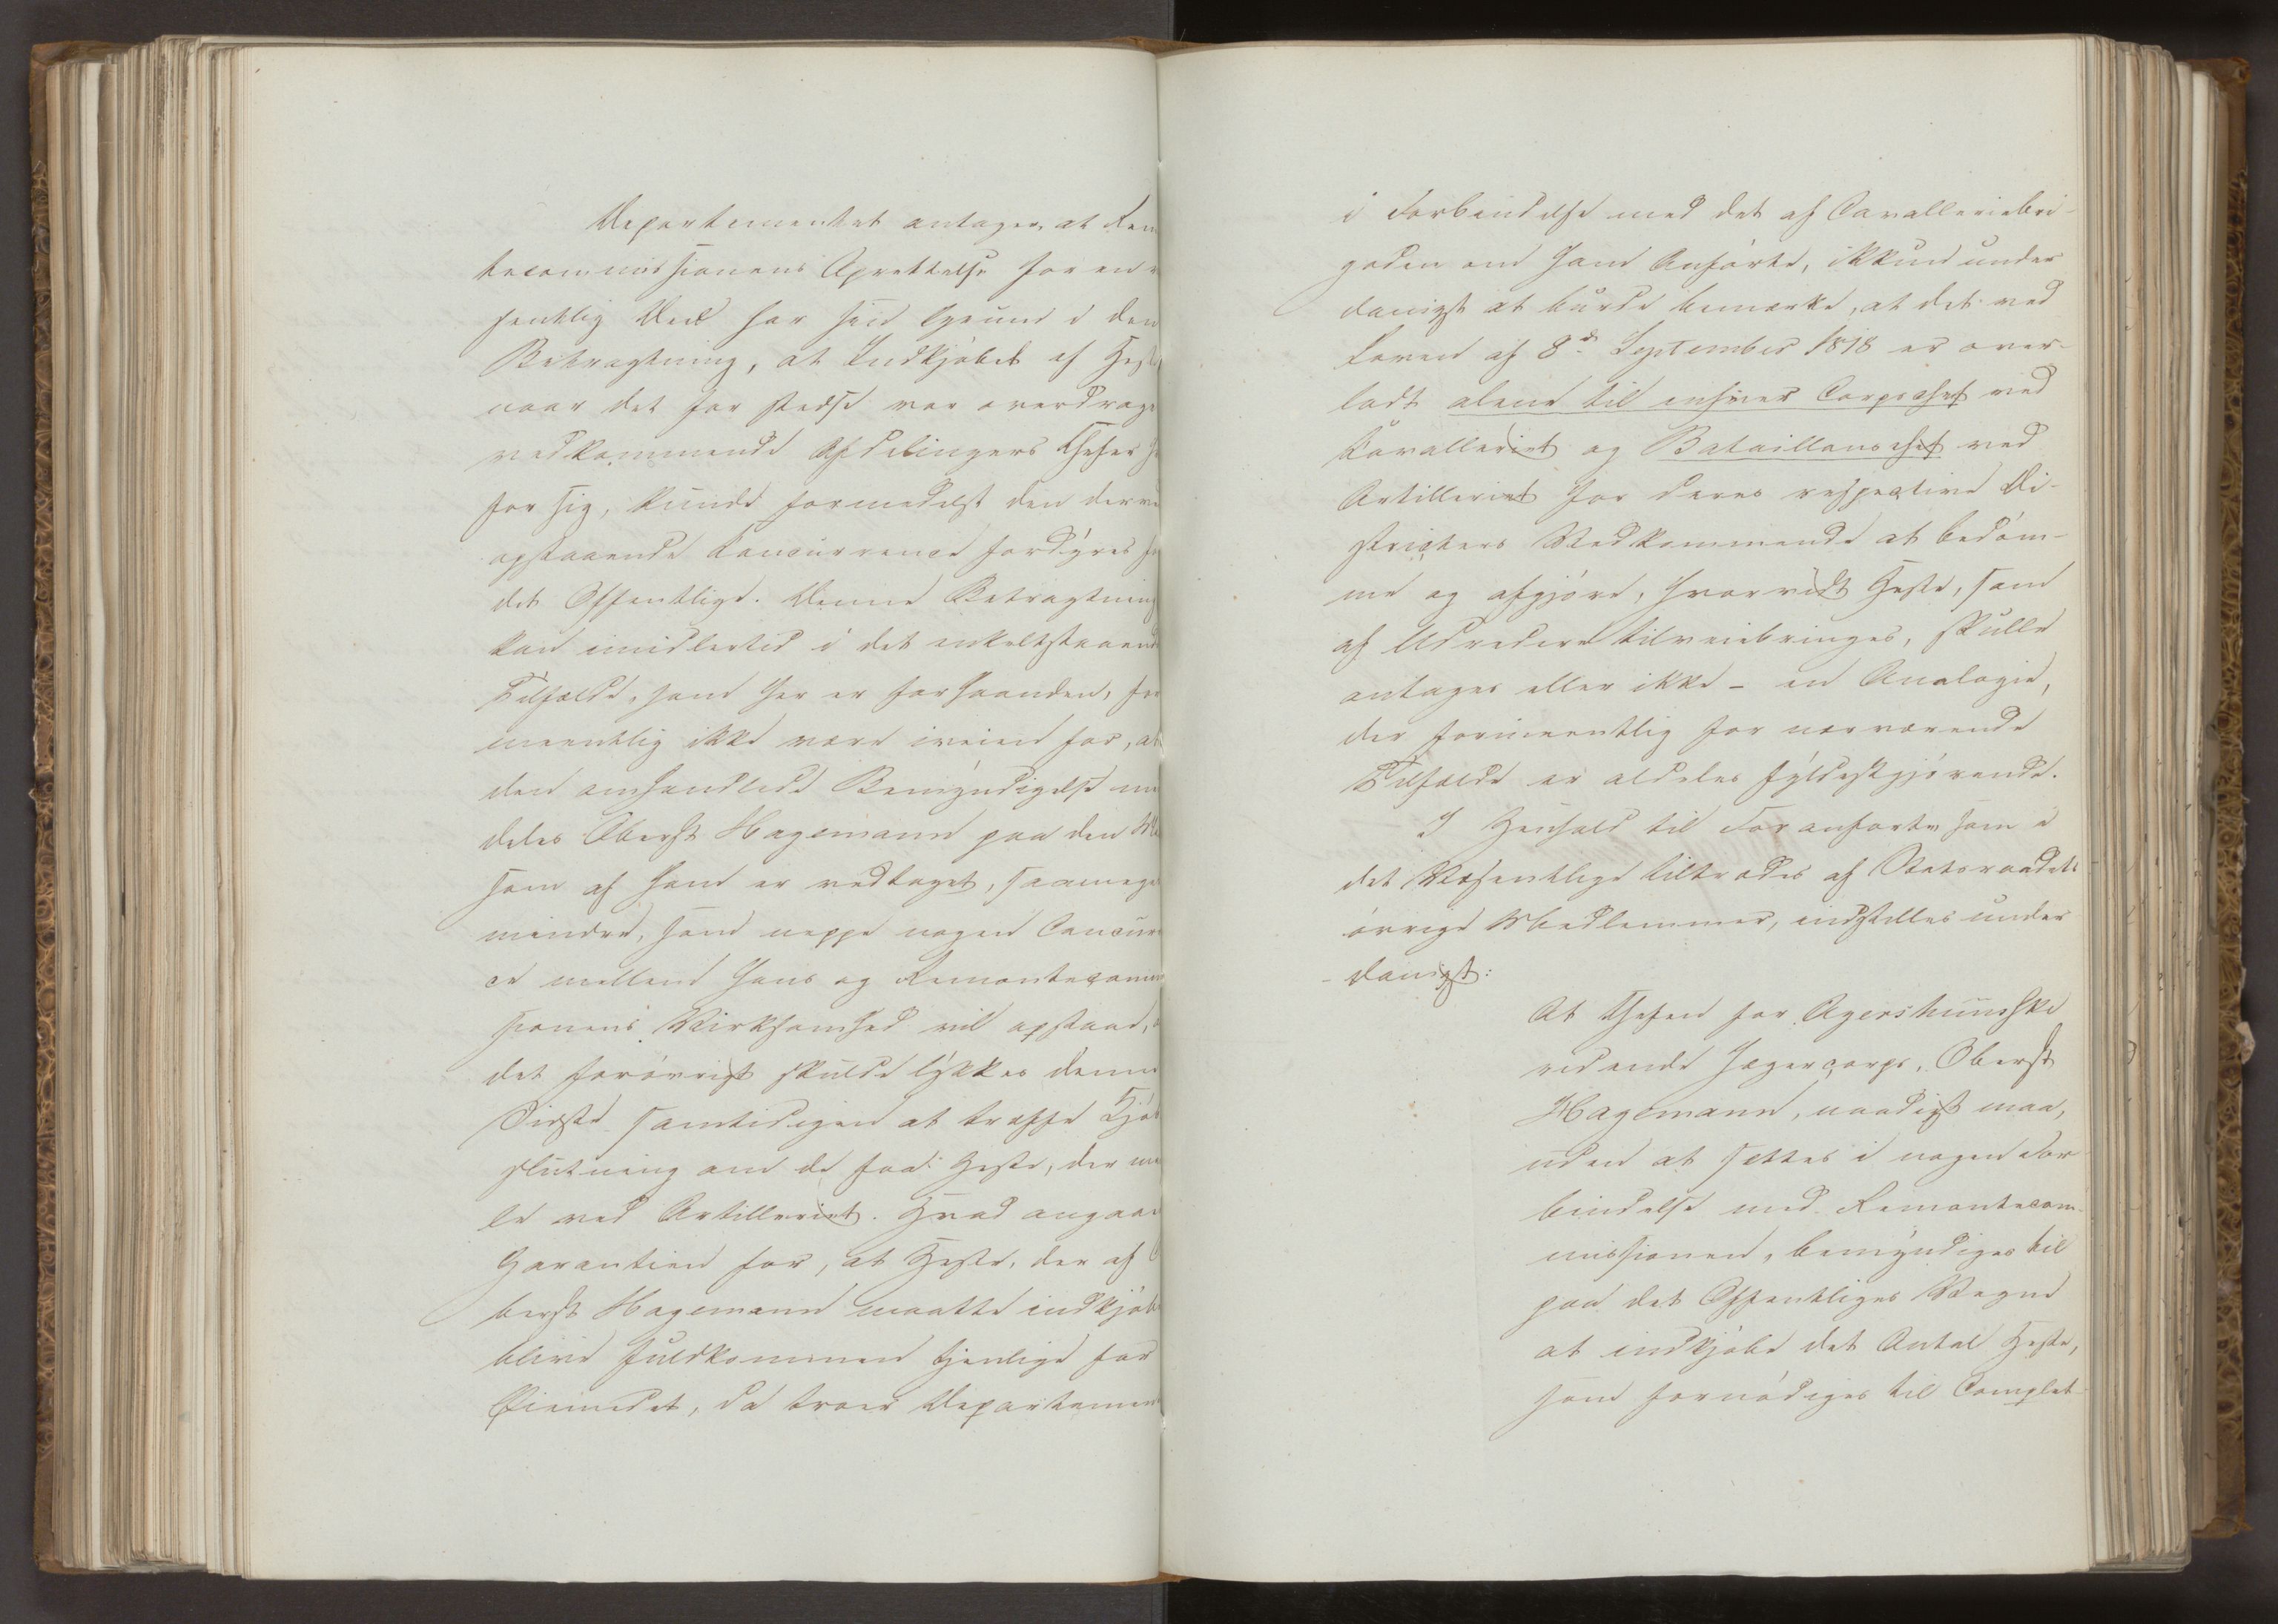 Departementet antager, at Rem
tecommissionens Oprettelse for en v
sentlig Deel har sin Grund i den
Betragtning, at Indkjöbet af Heste
naar det for stedse var overdrage
vedkommende Afdelingers Chefer h
for sig, kunde formedelst den derve
opstaaende Concurrence fordyres fo
det Offentlige. Denne Betragtning
kan imidlertid i det enkeltstaaende
Tilfælde, som her er forhaanden, for
meentlig ikke være iveien for, at
den omhandlede Bemyndigelse med
deles Oberst Hagemann paa den Maa
som af ham er vedtaget, saameget
mindre, som neppe nogen Concurr
ce mellem hans og Remontecommis
sionens Virksomhed vil opstaae, o
det forövrigt skulde lykkes denne
Sidste samtidigen at træffe Kjöb
slutning om de faa Heste, der man
le ved Artilleriet. Hvad angaaer
Garantien for, at Heste, der af O
berst Hagemann maatte indkjöbes
blive fuldkommen tjenlige for
Öiemedet, da troer Departement
i Forbindelse med det af Cavalleriebri-
gaden om ham Anförte, ikkun under
danigst at burde bemærke, at det ved
Loven af 8de September 1818 er over-
ladt alene til enhver Corpschef ved
Cavalleriet og Bataillonschef ved
Artilleriet for deres respective Di-
stricters Vedkommende at bedöm-
me og afgjöre, hvorvidt Heste, som
af Udredere tilveiebringes, skulle
antages eller ikke - en Analogie,
der formeentlig for nærværende
Tilfælde er aldeles fyldestgjörende.
I Henhold til Foranförte, som i
det Væsentlige tiltrædes af Statsraadets
övrige Medlemmer, indstilles under
- danigst:
At Chefen for Agershuusske
ridende Jægercorps, Oberst
Hagemann, naadigst maa,
uden at sættes i nogen For
bindelse med Remontecom-
missionen, bemyndiges til
paa det Offentliges Vegne
at indkjöbe det Antal Heste,
som fornödiges til Complet-